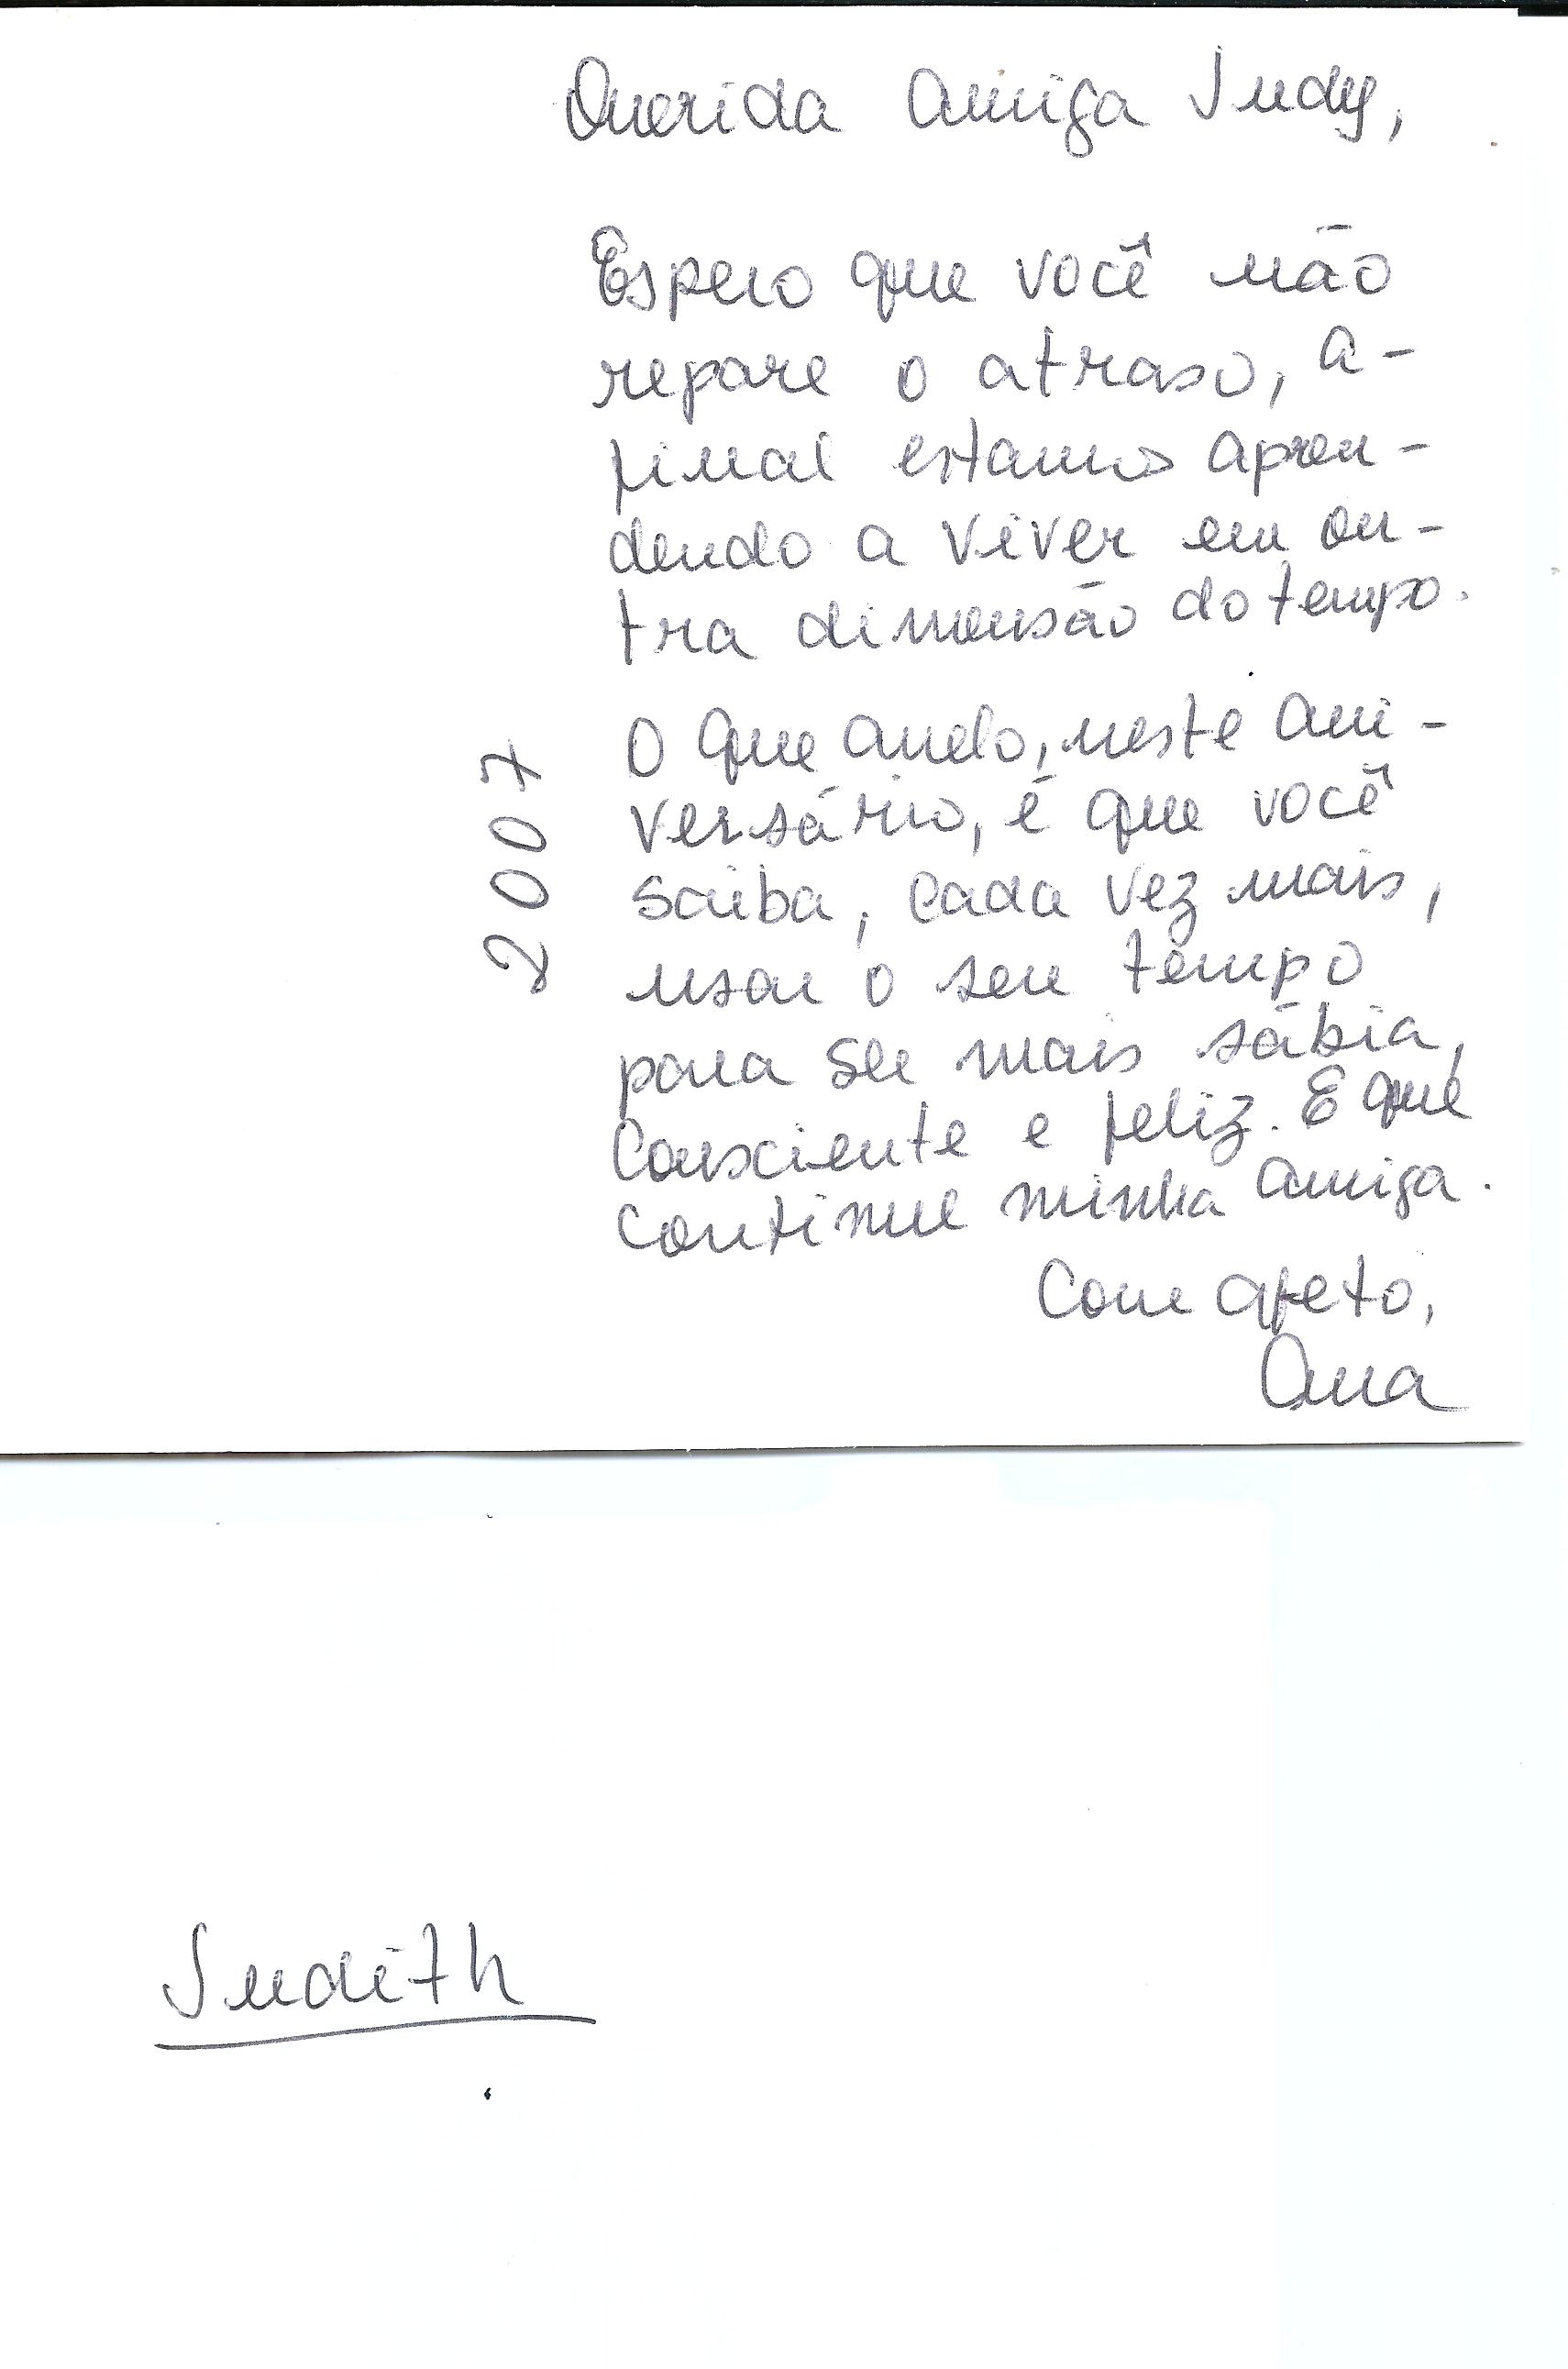 Querida amiga Judy,
Espero que você não
repare o atraso, a-
final estamos apren-
dendo a viver em ou-
tra dimensão do tempo.
O que anelo, neste ani-
versário, é que você
saiba, cada vez mais,
usar o seu tempo
para ser mais sábia,
consciente e feliz. E que
continue minha amiga.
Com afeto,
Ana
2007
Judith